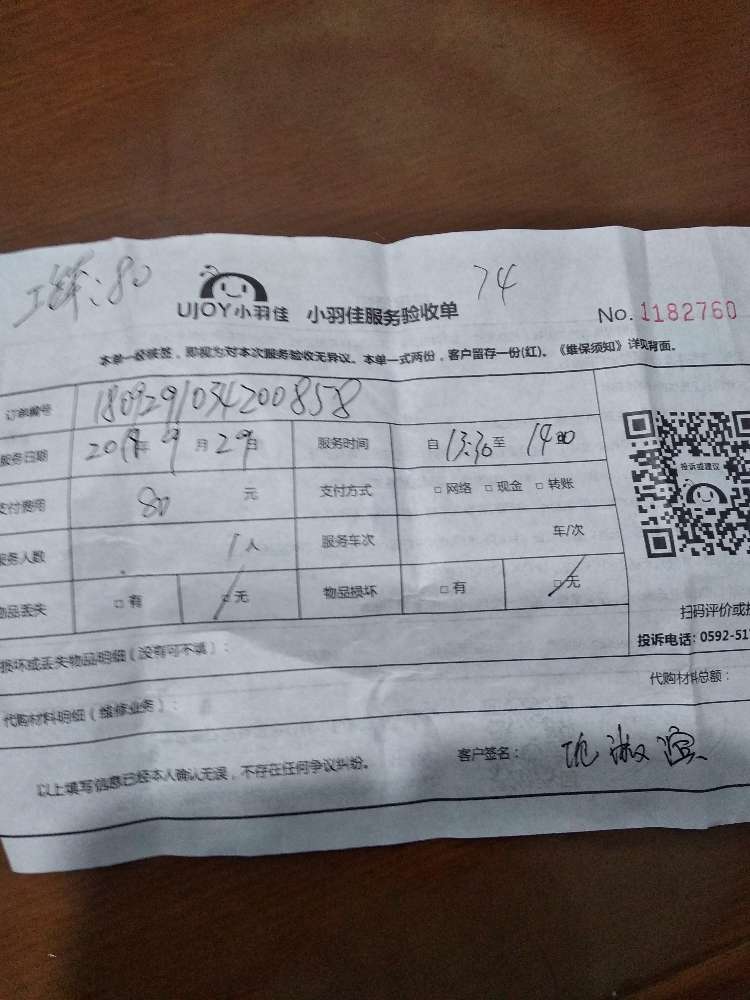 :80
74
UJOY小羽佳 小羽佳服务验收单 No.1182760
本单一经核签，即视为对本次服务验收无异议。本单一式两份，客户留存一份(红)。《维保须知》详见背面。
订单编号 1809291034200858
服务日期 2018年9月29日 服务时间 自13:30至14:00
支付费用 80元 支付方式 □网络 □现金 □转账
服务人数 1人 服务车次 车/次
物品丢失 □有 □无 物品损坏 □有 □无
投诉或建议
扫码评价或投
投诉电话: 0592-517
损坏或丢失物品明细（没有可不填）：
代购材料明细（维修业务）： 代购材料总额：
以上填写信息已经本人确认无误，不存在任何争议纠纷。 客户签名：